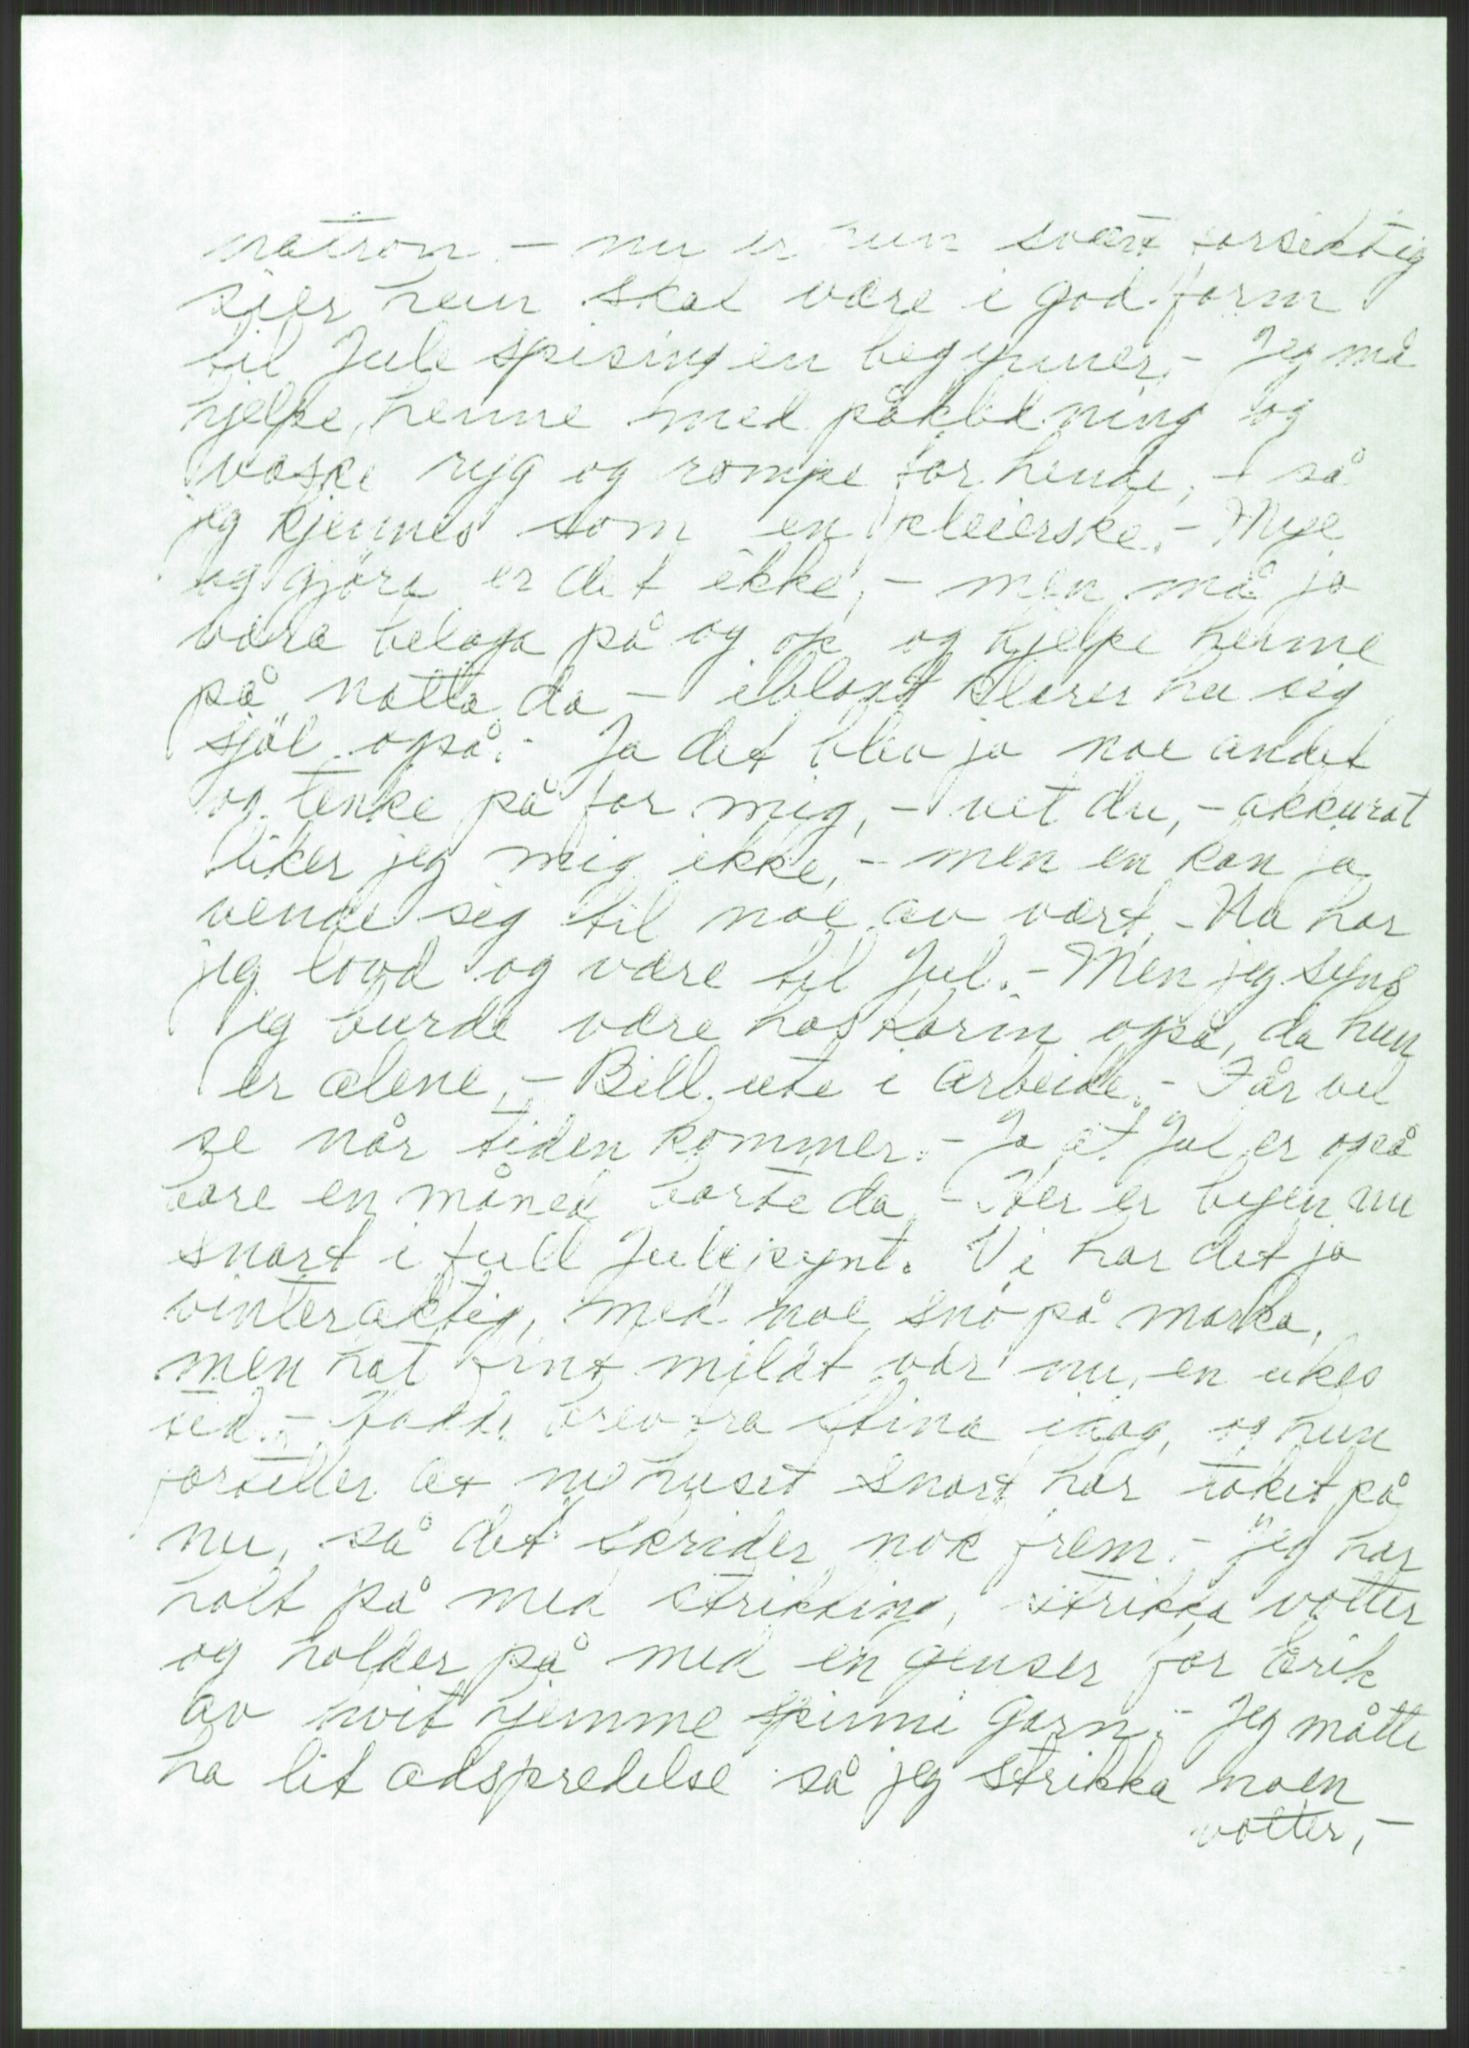 natron. - nu er hun svært forsiktig
sier hun skal være i god form
til Jule spisingen begynner, - Jeg må
hjelpe henne med påkledning og
vaske ryg og rompe for hende, - så
jeg kjennes som en pleierske. - Mye
og gjöra er det ikke, - men må jo
være belaga på og op og hjelpe henne
på natta da - iblant klarer hu sig
sjöl også. - Ja det blev jo noe andet
og tenke på for mig, - vet du, - akkurat
liker jeg mig ikke, - men en kan jo
vende sig til noe av vært, - Nu har
jeg lovd og være til Jul. - Men jeg syns
jeg burde være hos Karin også, da hun
er alene, - Bill ute i arbeide. - Får vel
se når tiden kommer. - Ja at Jul er også
bare en måned borte da, - Her er byen nu
snart i full Julepynt. Vi har det jo
vinteraktig, med noe snö på marka,
men hat fint mildt vær nu, en ukes
tid. - Hadde brev fra Stina idag, og hun
forteller at ny huset snart har taket på
nu, så det skrider nok frem. - Jeg har
holt på med strikking, strikka votter
og holder på med en genser for Erik
av hvit hjemme spinni garn. - Jeg måtte
ha lit adspredelse så jeg strikka noen
votter, -